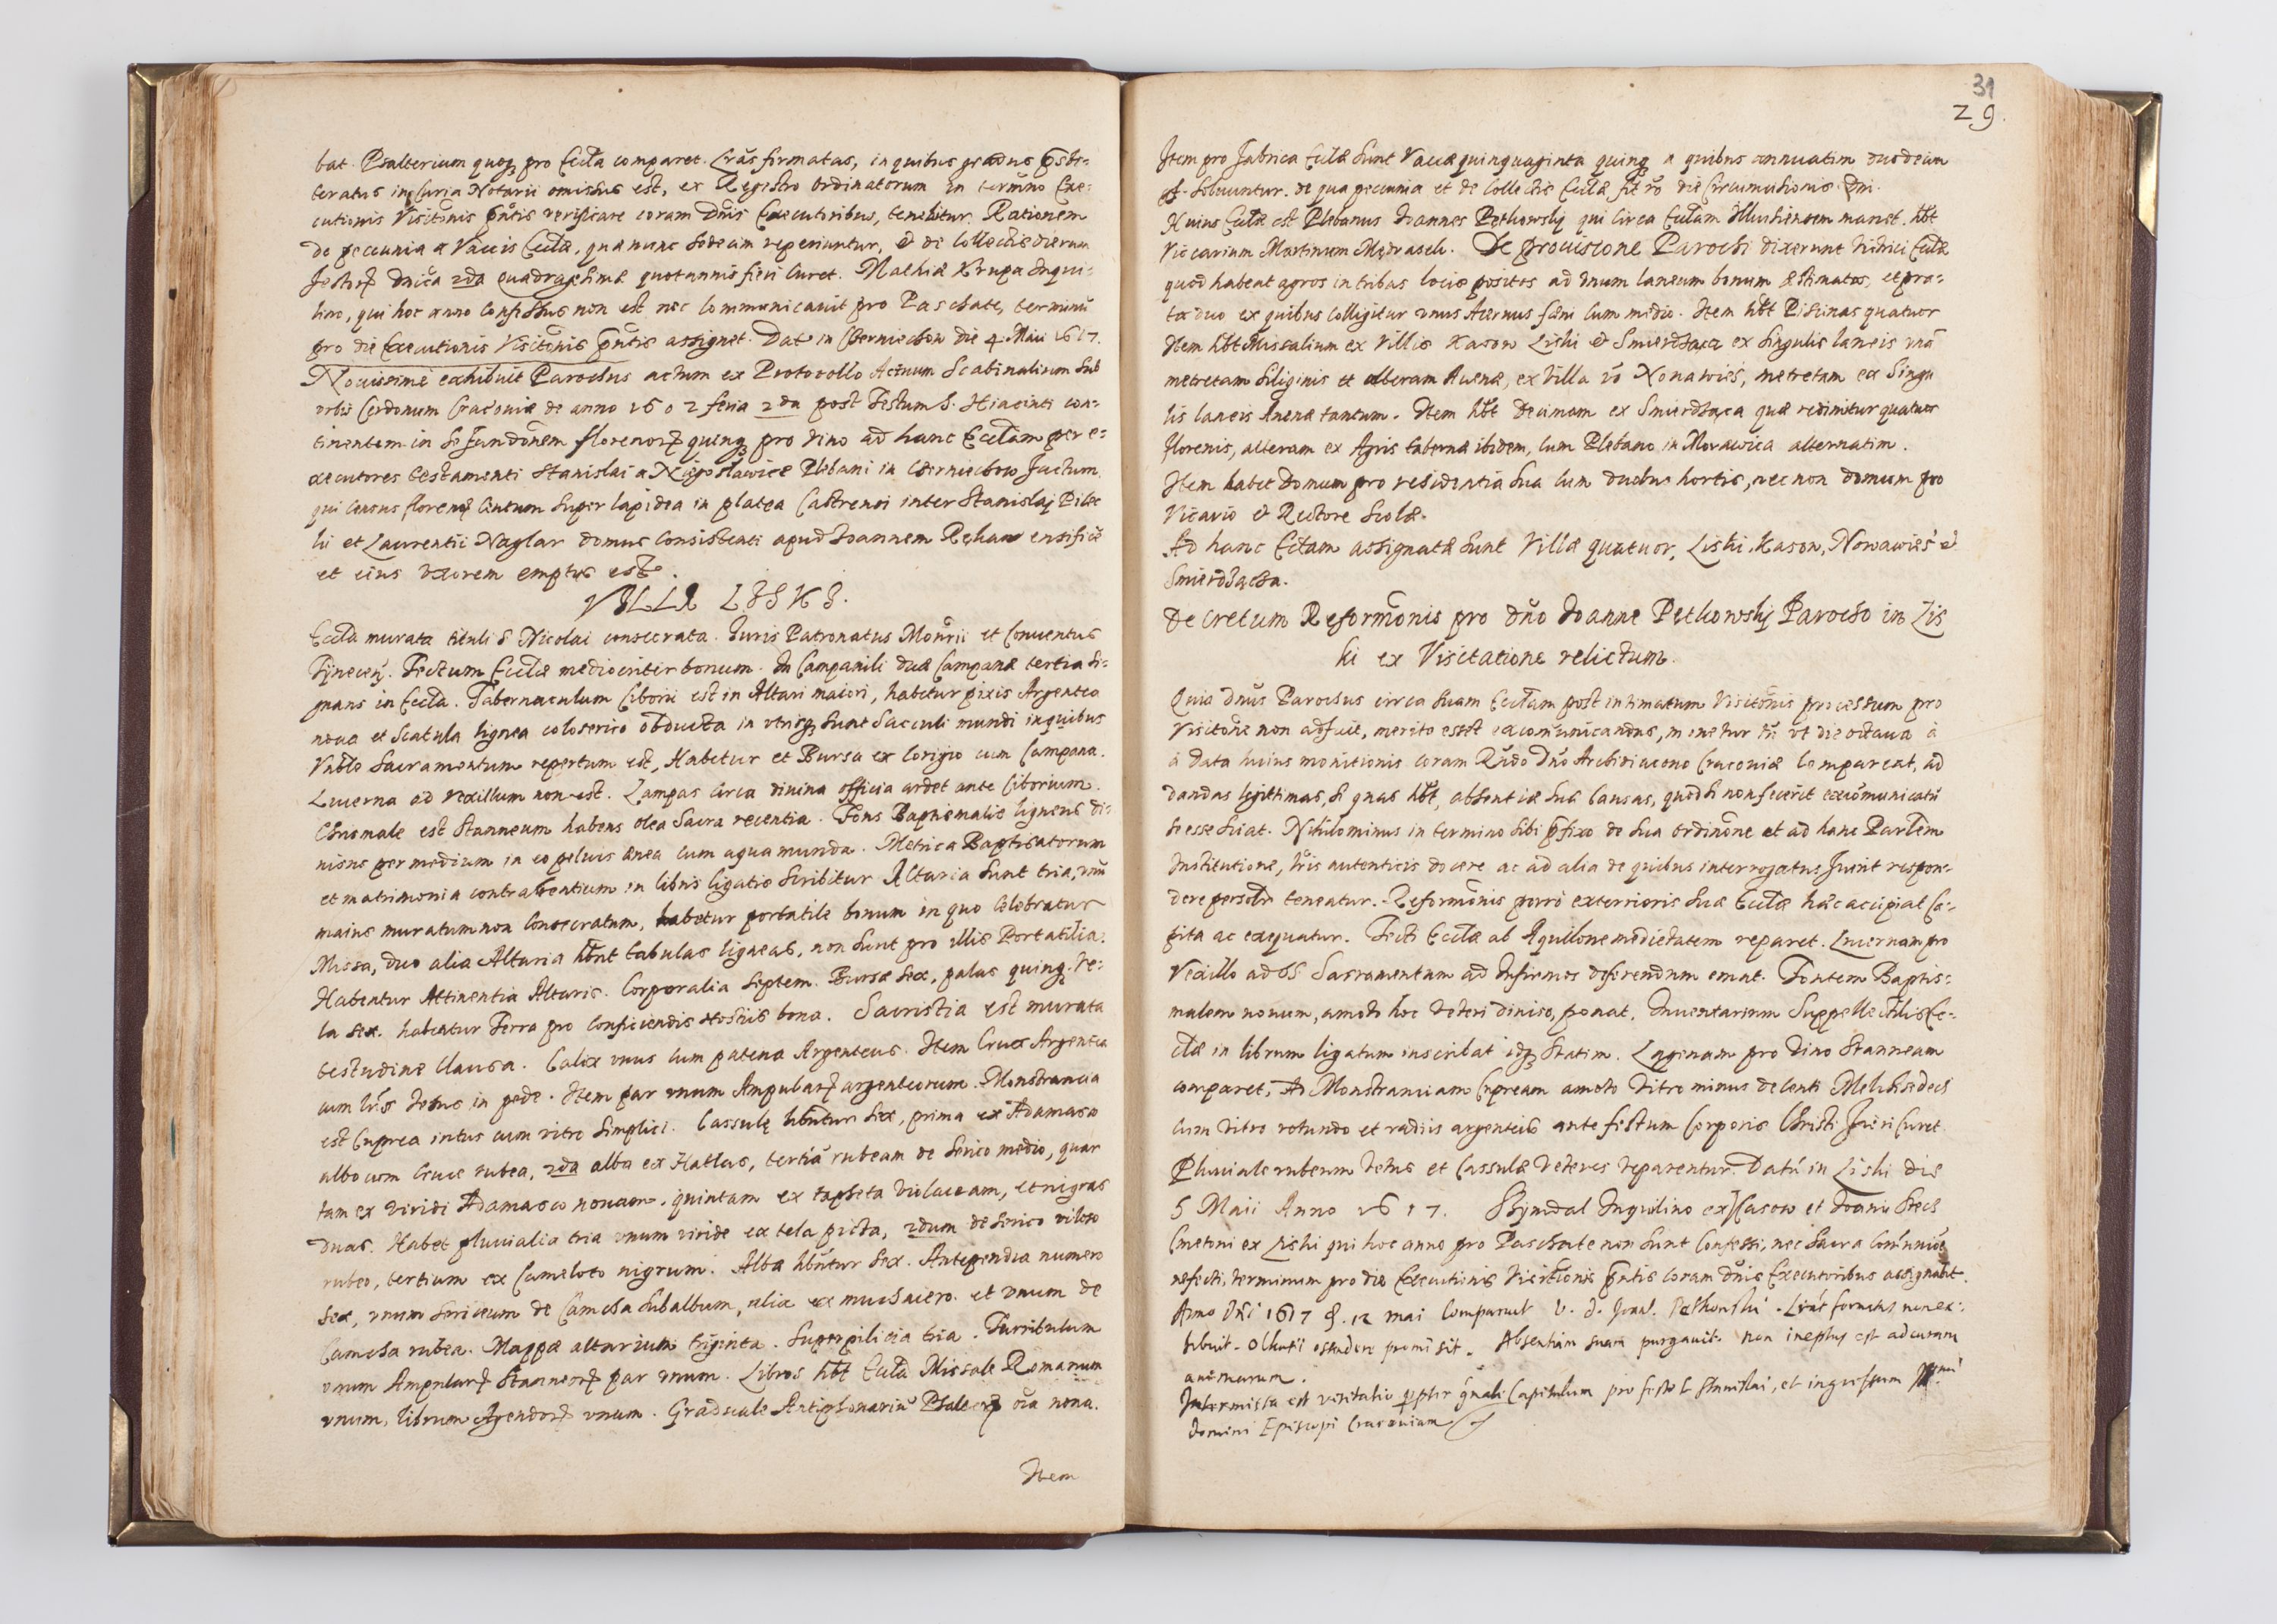 bat. Psalterium quoq₃ pro Eccla comparet. Lrãs firmatas, in quibus gradus p̃sbi=
teratus in Curia Notarii omissus est, ex Registro ordinatorum in termino Exe=
cutionis Visitõnis p̃ntis verificare coram Dnis Executoribus, tenebitur. Rationem
de peccunia a Vaccis Ecclæ, quæ nunc sedecim reperiuntur, et de Collectis dierum
festorꝝ dnica 2da quadragesimæ quotannis fieri curet. Mathiæ Krupa Inqui=
lino, qui hoc anno confessus non est nec communicavit pro Paschate, terminũ
pro die Executionis Visitõnis p̃ntis assignet. Dat̃ in Czerniechow die 4. Maii 1617.
Novissimè exhibuit Parochus actum ex Protocollo Actuum Scabinalium sub
orbis Cerdonum Cracoviæ de anno 1602 feria 2da post Festum S. Hiacinti con=
tinentem in se fundõnem florenorꝝ quinq₃ pro vino ad hanc Ecclam per e=
xecutores testamenti Stanislai a Niegosławice Plebani in Czerniechow factum
qui census florenorꝝ centum super lapidea in platea Castrensi inter Stanislaj Pile
ki et Laurentii Naglar domus consistenti apud Joannem Rękaw ensificẽ
et eius uxorem emptus est.
VILLA LISKI.
Eccla murata tituli S Nicolai consecrata. Juris Patronatus Monrii et Conventus
Tÿnecen̄. Tectum Ecclæ mediocriter bonum. In Campanili duæ Campanæ tertia si=
gnans in Eccla. Tabernaculum Ciborii est in Altari maiori, habetur pixis Argentea
nova et Scatula lignea coloserico obducta in utrisq₃ sunt Sacculi mundi in quibus
Vnble Sacramentum repertum est, Habetur et Bursa ex Corigio cum Campana.
Lucerna ad vexillum non est. Lampas circa divina officia ardet ante Ciborium.
Chrismale est stanneum habens olea Sacra recentia. Fons Baptismalis ligneus di=
visus per medium in eo pelvis ænea cum aqua munda. Metrica Baptisatorum
et matrimonia contrahentium in libris ligatis scribitur Altaria sunt tria, unũ
maius muratum non consecratum, habetur portatile bonum in quo celebratur
Missa, duo alia Altaria hñt tabulas ligneas, non sunt pro illis Portatilia.
Habentur Attinentia Altaris. Corporalia septem. Bursæ sex, palas quinq₃. Ve=
la sex. habentur Ferra pro conficiendis Hostiis bona. Sacristia est murata
testudine clausa. Calix unus cum patena Argenteus. Item Crux Argentea
cum lrĩs Jesus in pede. Item par unum Ampularꝝ argenteorum. Monstrancia
est Cuprea intus cum vitro simplici. Cassulę hñtur sex, prima ex Adamasco
albo cum Cruce rubea, 2da alba ex Hatlas, tertiã rubeam de serico medio, quar
tam ex viridi Adamasco novam. quintam ex tapheta violaceam, et nigras
duas. Habet pluvialia tria unum viride ex tela picta, 2dum de serico viloso
rubeo, tertium ex Cameloto nigrum. Albæ hñtur sex. Antependia numero
sex, unum sericeum de Camcha subalbum, alia ex muchaiero. et unum de
Camcha rubea. Mappæ altarium triginta. Superpilicia tria. Turribulum
unum Ampularꝝ Stanneorꝝ par unum. Libros hẽt Eccla Missale Romanum
unum, librum Agendorꝝ unum. Graduale Antiphonariũ Psalteorꝝ oĩa nona.
Item
31
29.
Item pro fabrica Ecclæ sunt Vaccæ quinquaginta quinq₃ a quibus annuatim duodecim
gr. solvuntur. de qua peccunia et de Collectis Ecclæ fit rõ die Circumcisionis Dni.
Huius Ecclæ est Plebanus Joannes Pętkowskÿ qui circa Ecclam Illkusiensem manet. hẽt
Viccarium Martinum Mędrasek. De provisione Parochi dixerunt Vitrici Ecclæ
quod habeat agros in tribus locis positos ad unum laneum bonum æstimatos, et pra=
ta duo ex quibus colligitur unus Acervus fæni cum medio. Item hẽt Piscinas quatuor
Item hẽt Missalium ex Villis Kasow Liski et Smierdzaca ex singulis laneis unã
metretam siliginis et alteram Avenæ, ex Villa vo Nowawies, metretam ex singu
lis laneis Avenæ tantum. Item hẽt Decimam ex Smierdząca quæ redimitur quatuor
florenis, alteram ex Agris tabernæ ibidem, cum Plebano in Morawica alternatim.
Item habet Domum pro residentia sua cum duobus hortis, nec non domum pro
Vicario et Rectore Scolæ.
Ad hanc Ecclam assignatæ sunt Villæ quatuor, Liski, Kasow, Nowawies et
Smierdzącza.
Decretum Reformõnis pro dno Joanne Pętkowskÿ Parocho in Lis
ki ex Visitatione relictum.
Quia dnus Parochus circa suam Ecclam post intimatum Visitõnis processum pro
Visitõne non adfuit, merito esset excomunicandus, monetur tñ ut die octava à
à data huius monitionis coram Rndo Dno Archidiacono Cracoviæ compareat, ad
dandas legittimas, si quas hẽt, absentiæ suæ causas, quod si non fecerit excõmunicatũ
se esse sciat. Nihilominus in termino sibi p̃fixo de sua ordinõne et ad hanc Parlem
Institutione, lris autenticis docere ac ad alia de quibus interrogatus fuerit respon=
dere personalr teneatur. Reformõnis porrò exterioris suæ Ecclæ hæc accipiat Ca=
pita ac exequatur. Tecti Ecclæ ab Aquilone medietatem reparet. Lucernam pro
Vexillo ad SS Sacramentum ad Infirmos deferendum emat. Fontem Baptis=
malem novum, amoto hoc Veteri diviso, ponat. Inventarium Suppellectilis Ec=
clæ in librum ligatum inscribat idq₃ statim. Lagenam pro vino stanneam
comparet, Ad Monstranciam Cupream amoto Vitro minus decenti Melchisedech
cum Vitro rotundo et radiis argenteis ante festum Corporis Christi fieri curet.
Pluviale rubeum Vetus et Cassulæ Veteres reparentur. Datũ in Liski die
5 Maii Anno 1617. Szÿmdal Inquilino ex Kasow et Joanni Stech
Cmetoni ex Liski qui hoc anno pro Paschate non sunt Confessi, nec sacra Comunióe
refecti, terminum pro die Executionis Visitõnis p̃ntis coram dnis Executoribus assignabit.
Anno Dñi 1617 d. 12 mai Comparuit V. d. Joan. Pethkowski. Lrãs formatas non ex=
hibuit. ostendere promisit. Absentiam suam purgavit. non ineptus est ad curam
animarum.
Intermissa est visitatio propter gñale Capitulum pro festo S. Stanislai, et ingressum
domini Episcopi Cracoviam